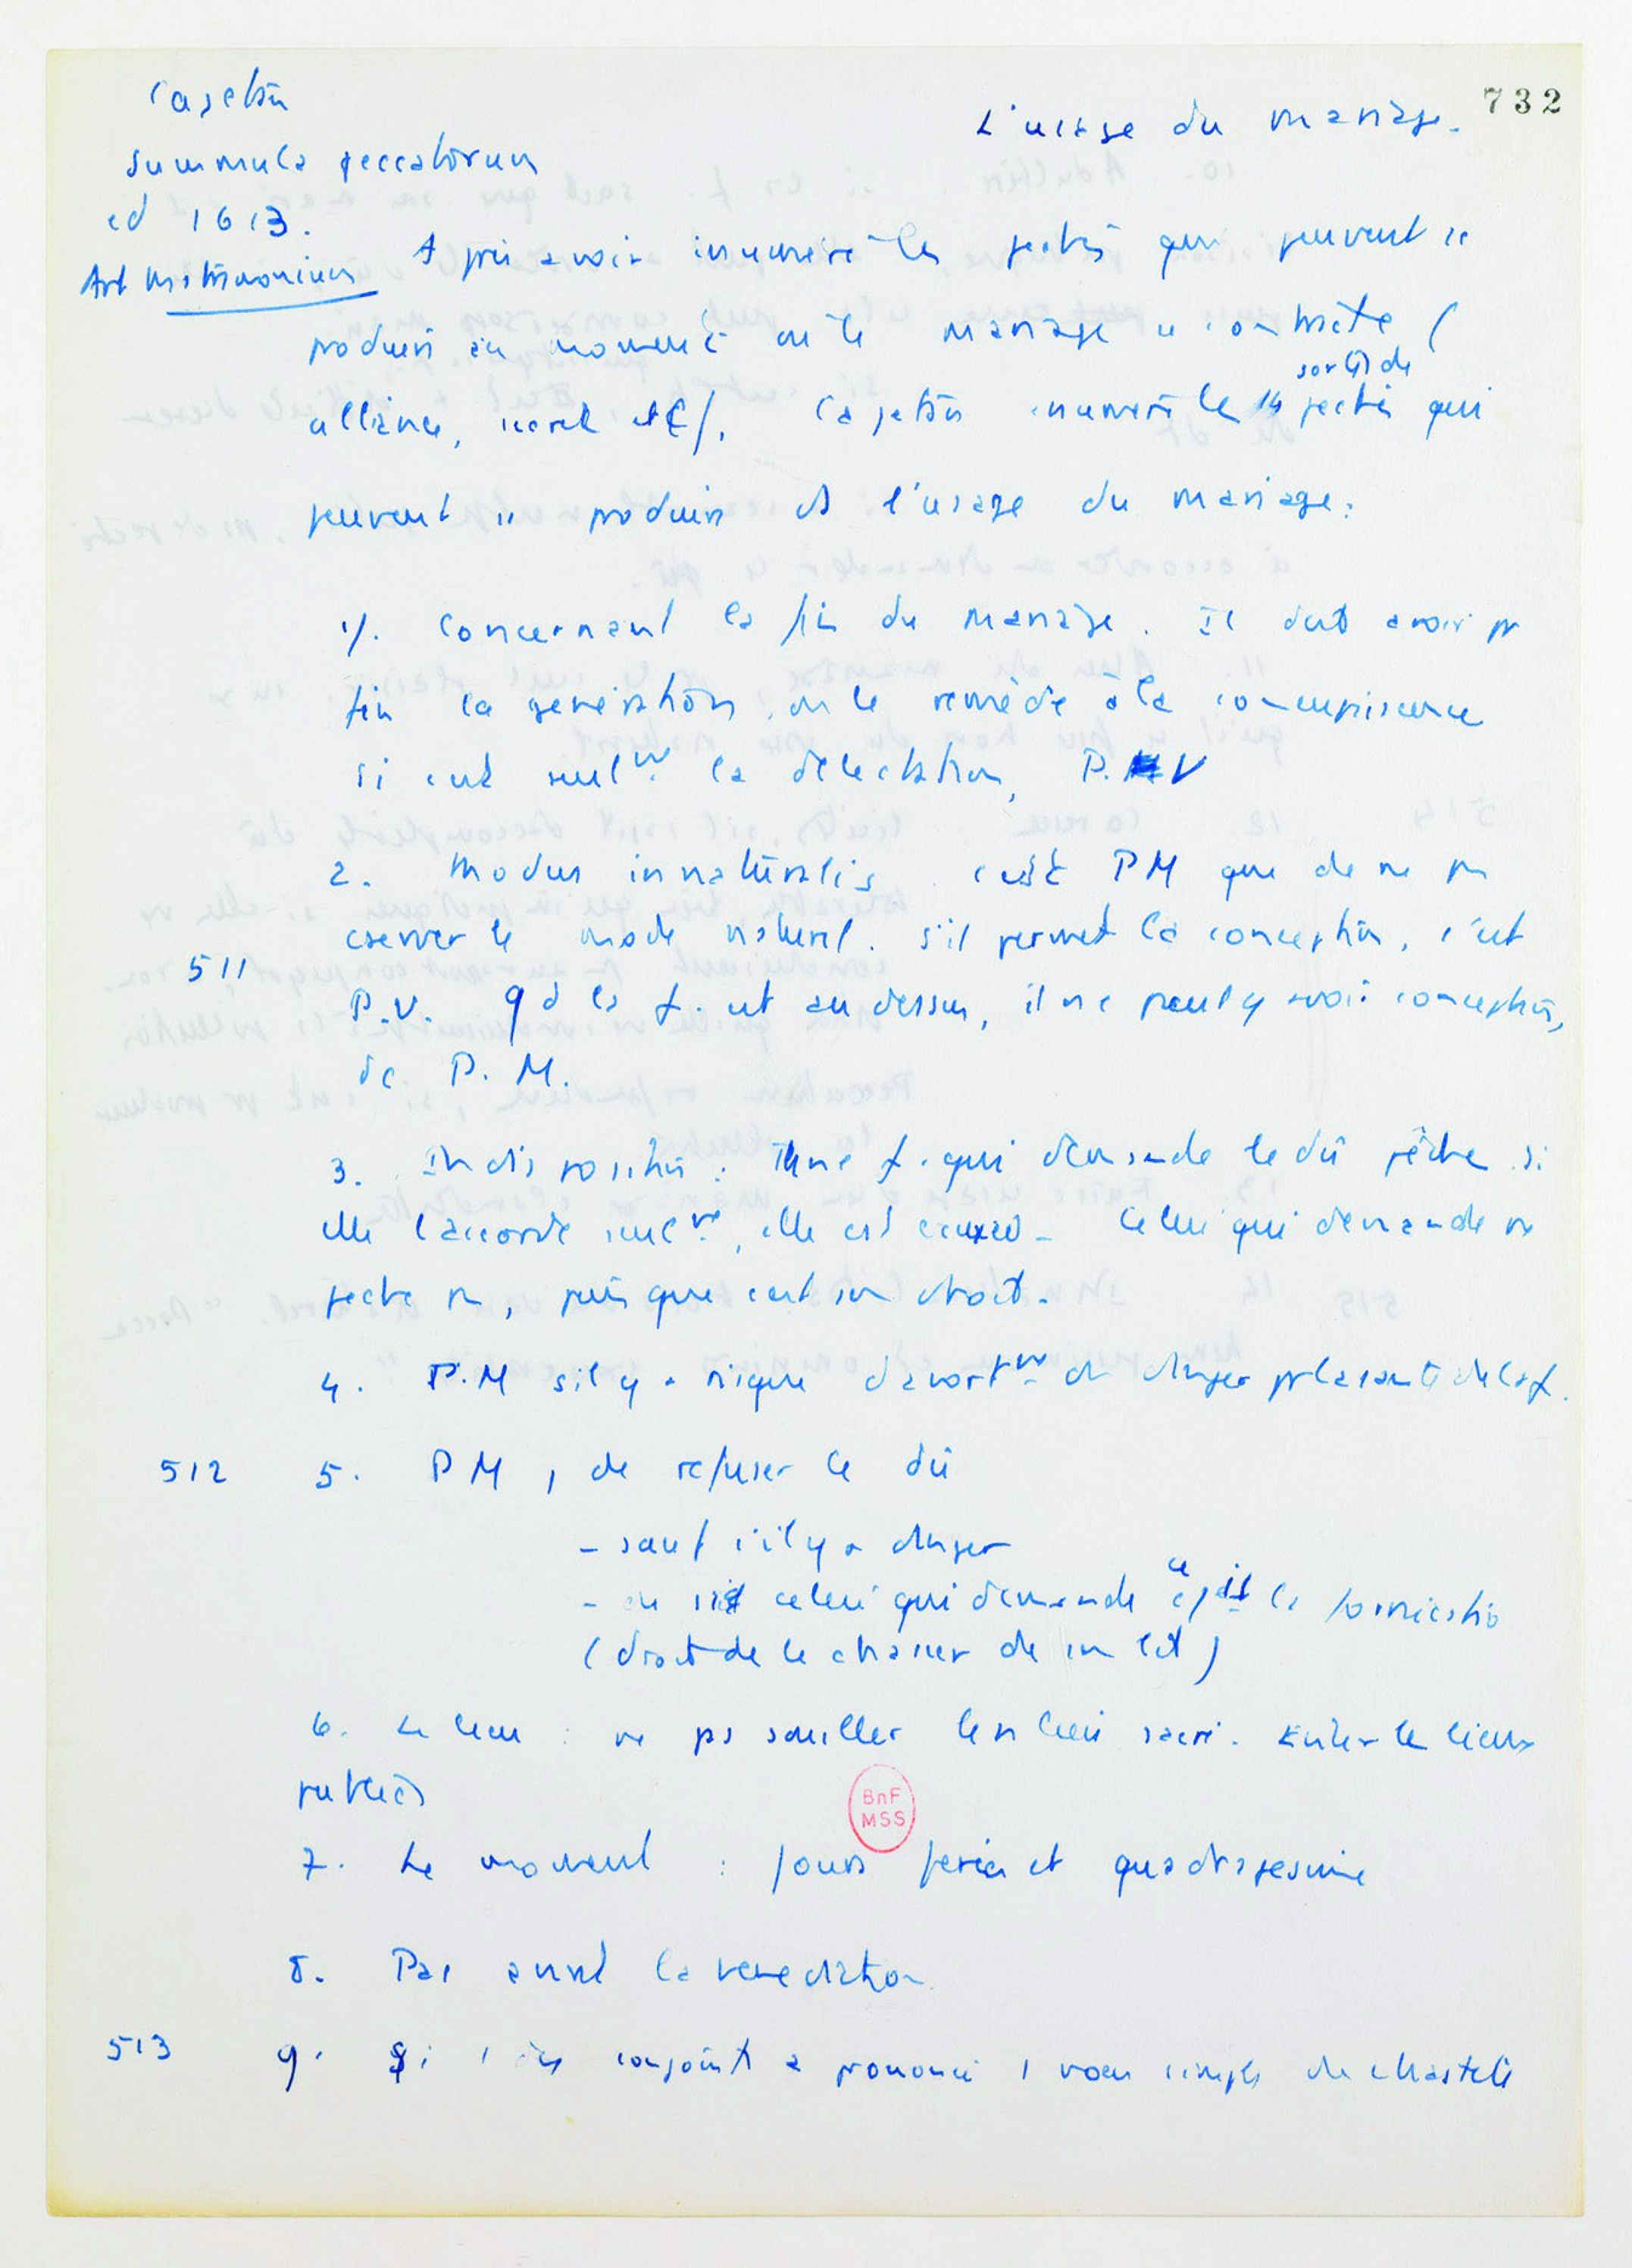 732
Cajetan
L'usage du mariage.
Summula peccatorum
ed 1613.
Art Matrimonium
Après avoir énuméré les péchés qui peuvent se
produire au moment où le mariage se contracte (
alliance, secret etc/. Cajetan énumère les 14 sortes de péchés qui
peuvent se produire ds l'usage du mariage.
1/. Concernant la fin du mariage. Il doit avoir pr
fin la génération, ou le remède à la concupiscence
si c'est seulmt la délectation, P.V
2. Modus innaturalis. c'est PM que de ne pas
observer le mode naturel. s'il permet la conception, c'est
511
P.V. Qd la f. est au dessus, il ne peut y avoir conception,
dc P. M.
3. Indisposition : Une f. qui demande le dû pèche. si
elle l'accorde seulmt, elle est excusée. Celui qui demande ne
pèche pas, puisque c'est son droit.
4. P.M s'il y a risque d'avortmt ou danger pr la santé de la f.
512
5. PM, de refuser le dû
- sauf s'il y a danger
- ou si celui qui demande a la fornication
(droit de le chasser de son lit)
6. Le lieu : ne pas souiller les lieux sacrés. Eviter les lieux
publics
BnF
MSS
7. Le moment : jours fériés et quadragésime
8. Pas avant la bénédiction
513
9. Si 1 des conjoints a prononcé 1 voeu simple de chasteté